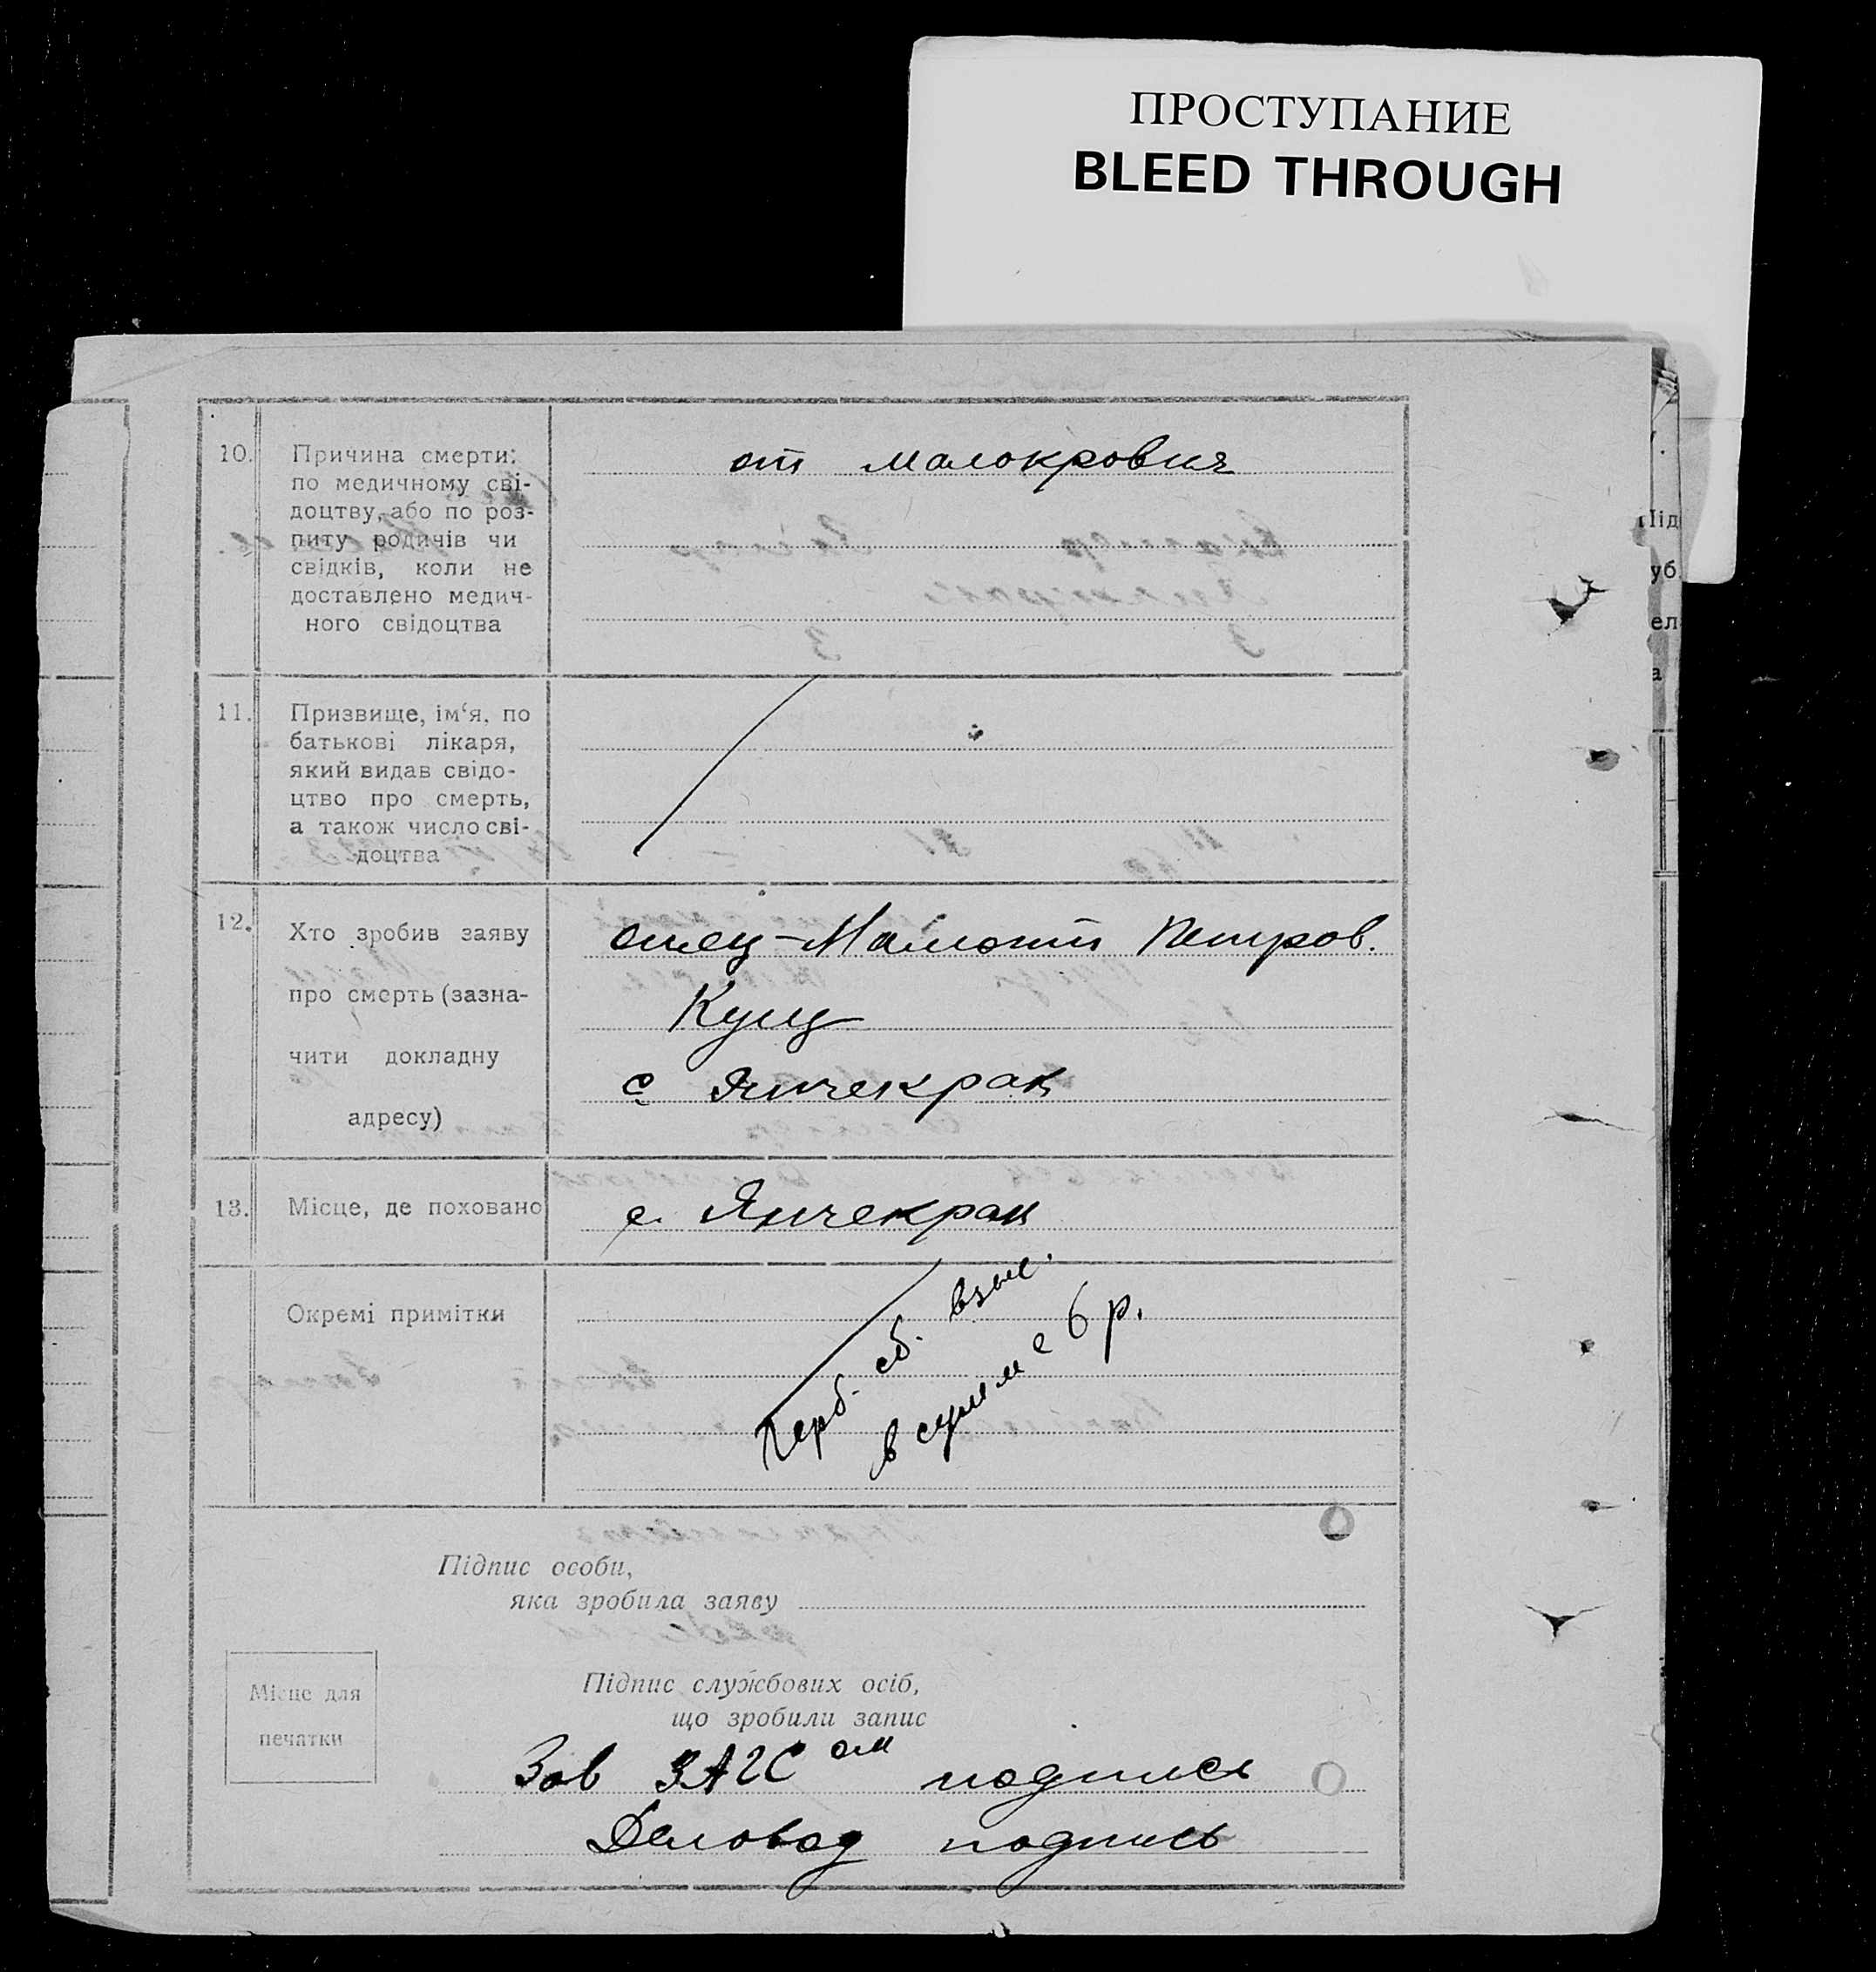 ПРОСТУПАНИЕ
BLEED THROUGH
10.
Причина смерти:
по медичному сві-
доцтву, або по роз-
питу родичів чи
свідків, коли не
доставлено медич-
ного свідоцтва
от малокровия
11.
Призвище, ім‘я, по
батькові лікаря,
який видав свідо-
цтво про смерть,
а також число сві-
доцтва
12.
Хто зробив заяву
про смерть (зазна-
чити докладну
адресу)
отец – Мамонт Петров.
Кущ
с Янчекрак
13.
Місце, де поховано
с. Янчекрак
Окремі примітки
Герб. сб. взыс.
в сумме 6 р.
Підпис особи,
яка зробила заяву
Місце для
печатки
Підпис службових осіб,
що зробили запис
Зав ЗАГСом подпись
Деловод подпись
Під
уб
ел
а